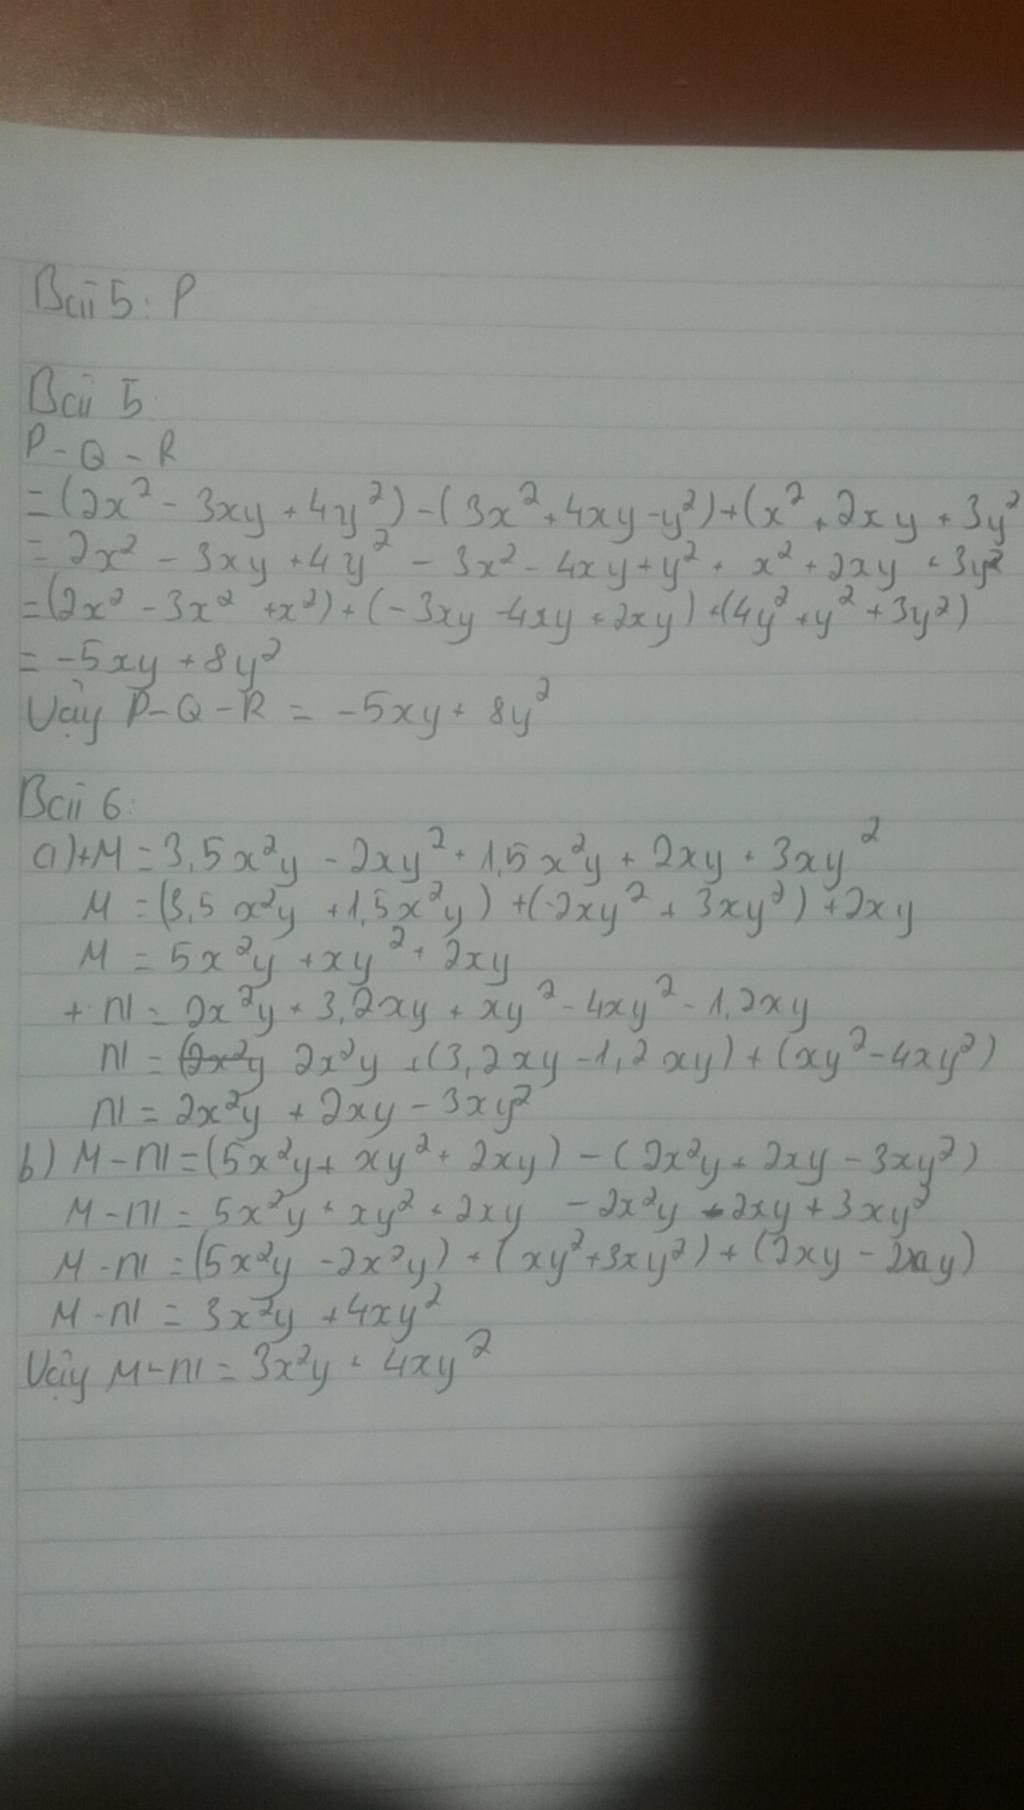 Bài 5: P
Bài 5
P - Q - R
= (2x² - 3xy + 4y²) - (3x² + 4xy - y²) + (x² + 2xy + 3y²
= 2x² - 3xy + 4y² - 3x² - 4xy + y² + x² + 2xy + 3y²
= (2x² - 3x² + x²) + (-3xy - 4xy + 2xy) + (4y² + y² + 3y²)
= -5xy + 8y²
Vậy P - Q - R = -5xy + 8y²
Bài 6:
a) + M = 3,5x²y - 2xy² + 1,5x²y + 2xy + 3xy²
M = (3,5x²y + 1,5x²y) + (-2xy² + 3xy²) + 2xy
M = 5x²y + xy² + 2xy
+ N = 2x²y + 3,2xy + xy² - 4xy² - 1,2xy
N = 2x²y + (3,2xy - 1,2xy) + (xy² - 4xy²)
N = 2x²y + 2xy - 3xy²
b) M - N = (5x²y + xy² + 2xy) - (2x²y + 2xy - 3xy²)
M - N = 5x²y + xy² + 2xy - 2x²y - 2xy + 3xy²
M - N = (5x²y - 2x²y) + (xy² + 3xy²) + (2xy - 2xy)
M - N = 3x²y + 4xy²
Vậy M - N = 3x²y + 4xy²